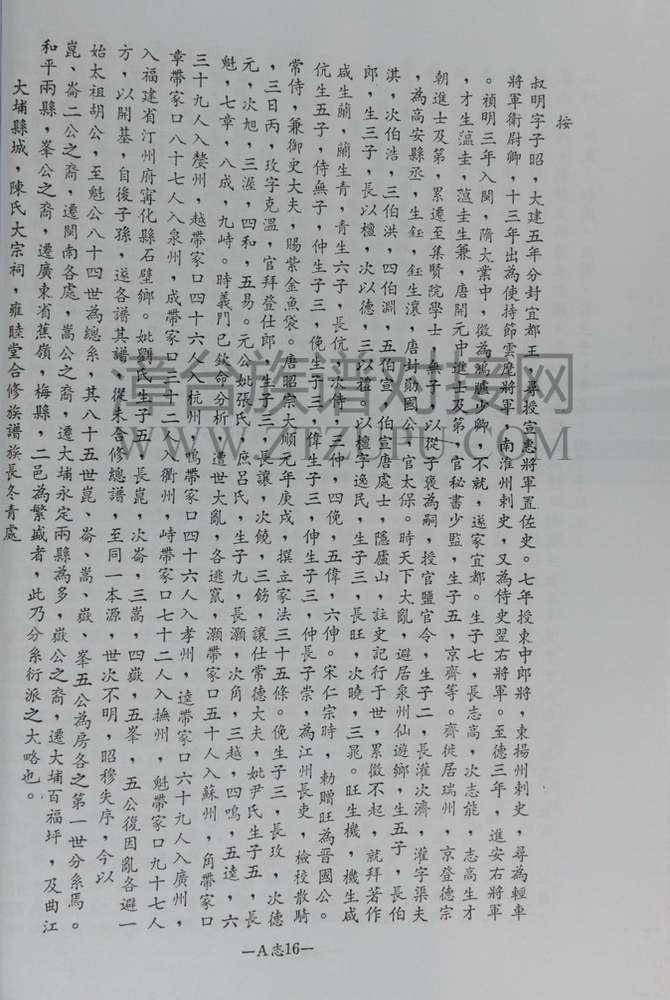 按
叔明字子昭,大建五年分封宜都王,尋授宣惠將軍置佐史。七年授東中郎將,東揚州刺史,尋為輕車
將軍衛尉卿,十三年出為使持節雲麾將軍,南淮州刺史,又為侍史翌右將軍。至德三年,進安右將軍
。禎明三年入関,隋大業中,徵為鴻臚少卿,不就,遂家宜都。生子七,長志高,次志能,志高生才
,才生蕰圭,蕰圭生兼,唐開元中進士及第,官秘書少監,生子五,京齊等。齊徙居瑞州,京登德宗
朝進士及第,累遷至集賢院學士 無子 以從子褒為嗣,授官鹽官令,生子二,長灌次濟,灌字渠夫
,為高安縣丞,生鈺,鈺生瀼,唐封勛國公,官太保。時天下大亂,避居泉州仙遊鄉,生五子,長伯
洪,次伯浩,三伯洪,四伯淵,五伯宣,伯宣唐處士,隱廬山,註史記行于世,累徵不起,就拜著作
郎,生三子,長以檀,次以德,三以禮。以檀字逸民,生子三,長旺,次曉,三晁。旺生機,機生咸
咸生蘭,蘭生青,青生六子,長伉,次侍,三仲,四俛,五偉,六伸。宋仁宗時,勅贈旺為晉國公。
伉生五子,侍無子,仲生子三,俛生子三,偉生子三,伸生子三,仲長子崇,為江州長吏,檢校散騎
常侍,兼御史大夫,賜紫金魚袋。唐昭宗大順元年庚戌,撰立家法三十五條。俛生子三,長玫,次德
,三日丙,玫字克溫,官拜登仕郎,生子三,長讓,次饒,三鈁,讓仕常德大夫,妣尹氏生子五,長
元,次旭,三渥,四和,五易。元公妣張氏,庶呂氏,生子九,長灝,次角,三越,四鳴,五逵,六
魁,七章,八成,九峙。時義門已欽命分析,遭世大亂,各逃竄,灝帶家口五十人入蘇州,角帶家口
三十九人入婺州,越帶家口四十六人入杭州,鳴帶家口四十六人入孝州,逵帶家口六十九人入廣州,
章帶家口八十七人入泉州,成帶家口三十二人入衢州,峙帶家口七十二人入撫州,魁帶家口九十七人
入福建省汀州府寧化縣石壁鄉。妣劉氏生子五,長崑,次崙,三嵩,四嶽,五峯,五公復因亂各避一
方,以開基,自後子孫,遂各譜其譜,從未合修總譜,至同一本源,世次不明,昭穆失序,今以
始太祖胡公,至魁公八十四世為總系,其八十五世崑、崙、嵩、嶽、峯五公為房各之第一世分系焉。
崑、崙二公之裔,遷閩南各處,嵩公之裔,遷大埔永定兩縣為多,嶽公之裔,遷大埔百福坪,及曲江
和平兩縣,峯公之裔,遷廣東省蕉嶺,梅縣,二邑為繁盛者,此乃分系衍派之大略也。
大埔縣城,陳氏大宗祠,雍睦堂合修族譜族長冬青處
—A志16—
章台族谱对接网
WWW.ZTZUPU.COM